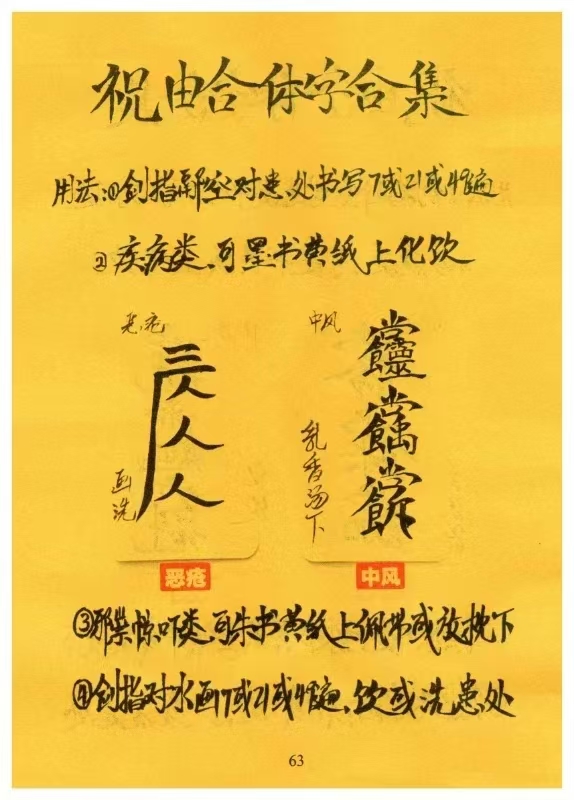 祝由合体字合集
用法:①剑指隔空对患处书写7或21或49遍
②疾病类,可墨书黄纸上化饮
恶疮
画洗
中风
乳香汤下
恶疮
中风
③邪祟惊吓类,可朱书黄纸上佩带或放枕下
④剑指对水画7或21或49遍、饮或洗患处
63